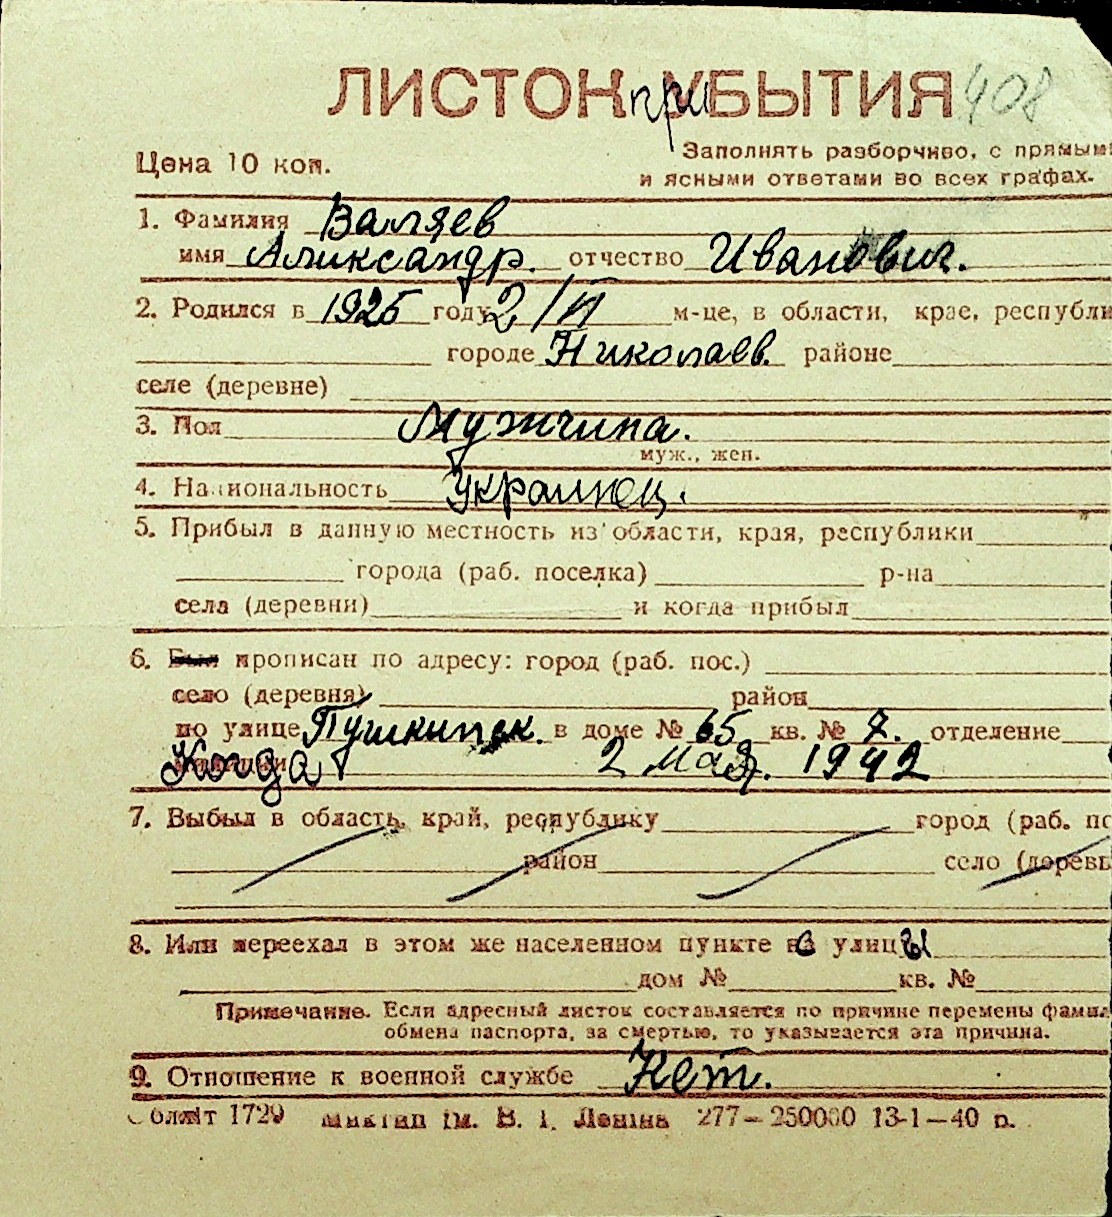 ЛИСТОК при УБЫТИЯ 408
Цена 10 коп.
Заполнять разборчиво, с прямым
и ясными ответами во всех графах.
1. Фамилия Валяев
имя Александр. отчество Иванович.
2. Родился в 1925 году 2/VI м-це, в области, крае, республи
городе Николаев. районе
селе (деревне)
3. Пол Мужчина.
муж., жен.
4. Национальность Украинец.
5. Прибыл в данную местность из области, края, республики
города (раб. поселка) р-на
села (деревни) и когда прибыл
6. Был прописан по адресу: город (раб. пос.)
село (деревня) район
по улице Пушкинск. в доме № 65 кв. № 7. отделение
Когда 2 мая. 1942
7. Выбыл в область, край, республику город (раб. по
район село (деревь
8. Или переехал в этом же населенном пункте с улицы
дом № кв. №
Примечание. Если адресный листок составляется по причине перемены фамил
обмена паспорта, за смертью, то указывается эта причина.
9. Отношение к военной службе Нет.
Обліт 1729 ім. В. І. Леніна 277—250000 13-1—40 р.